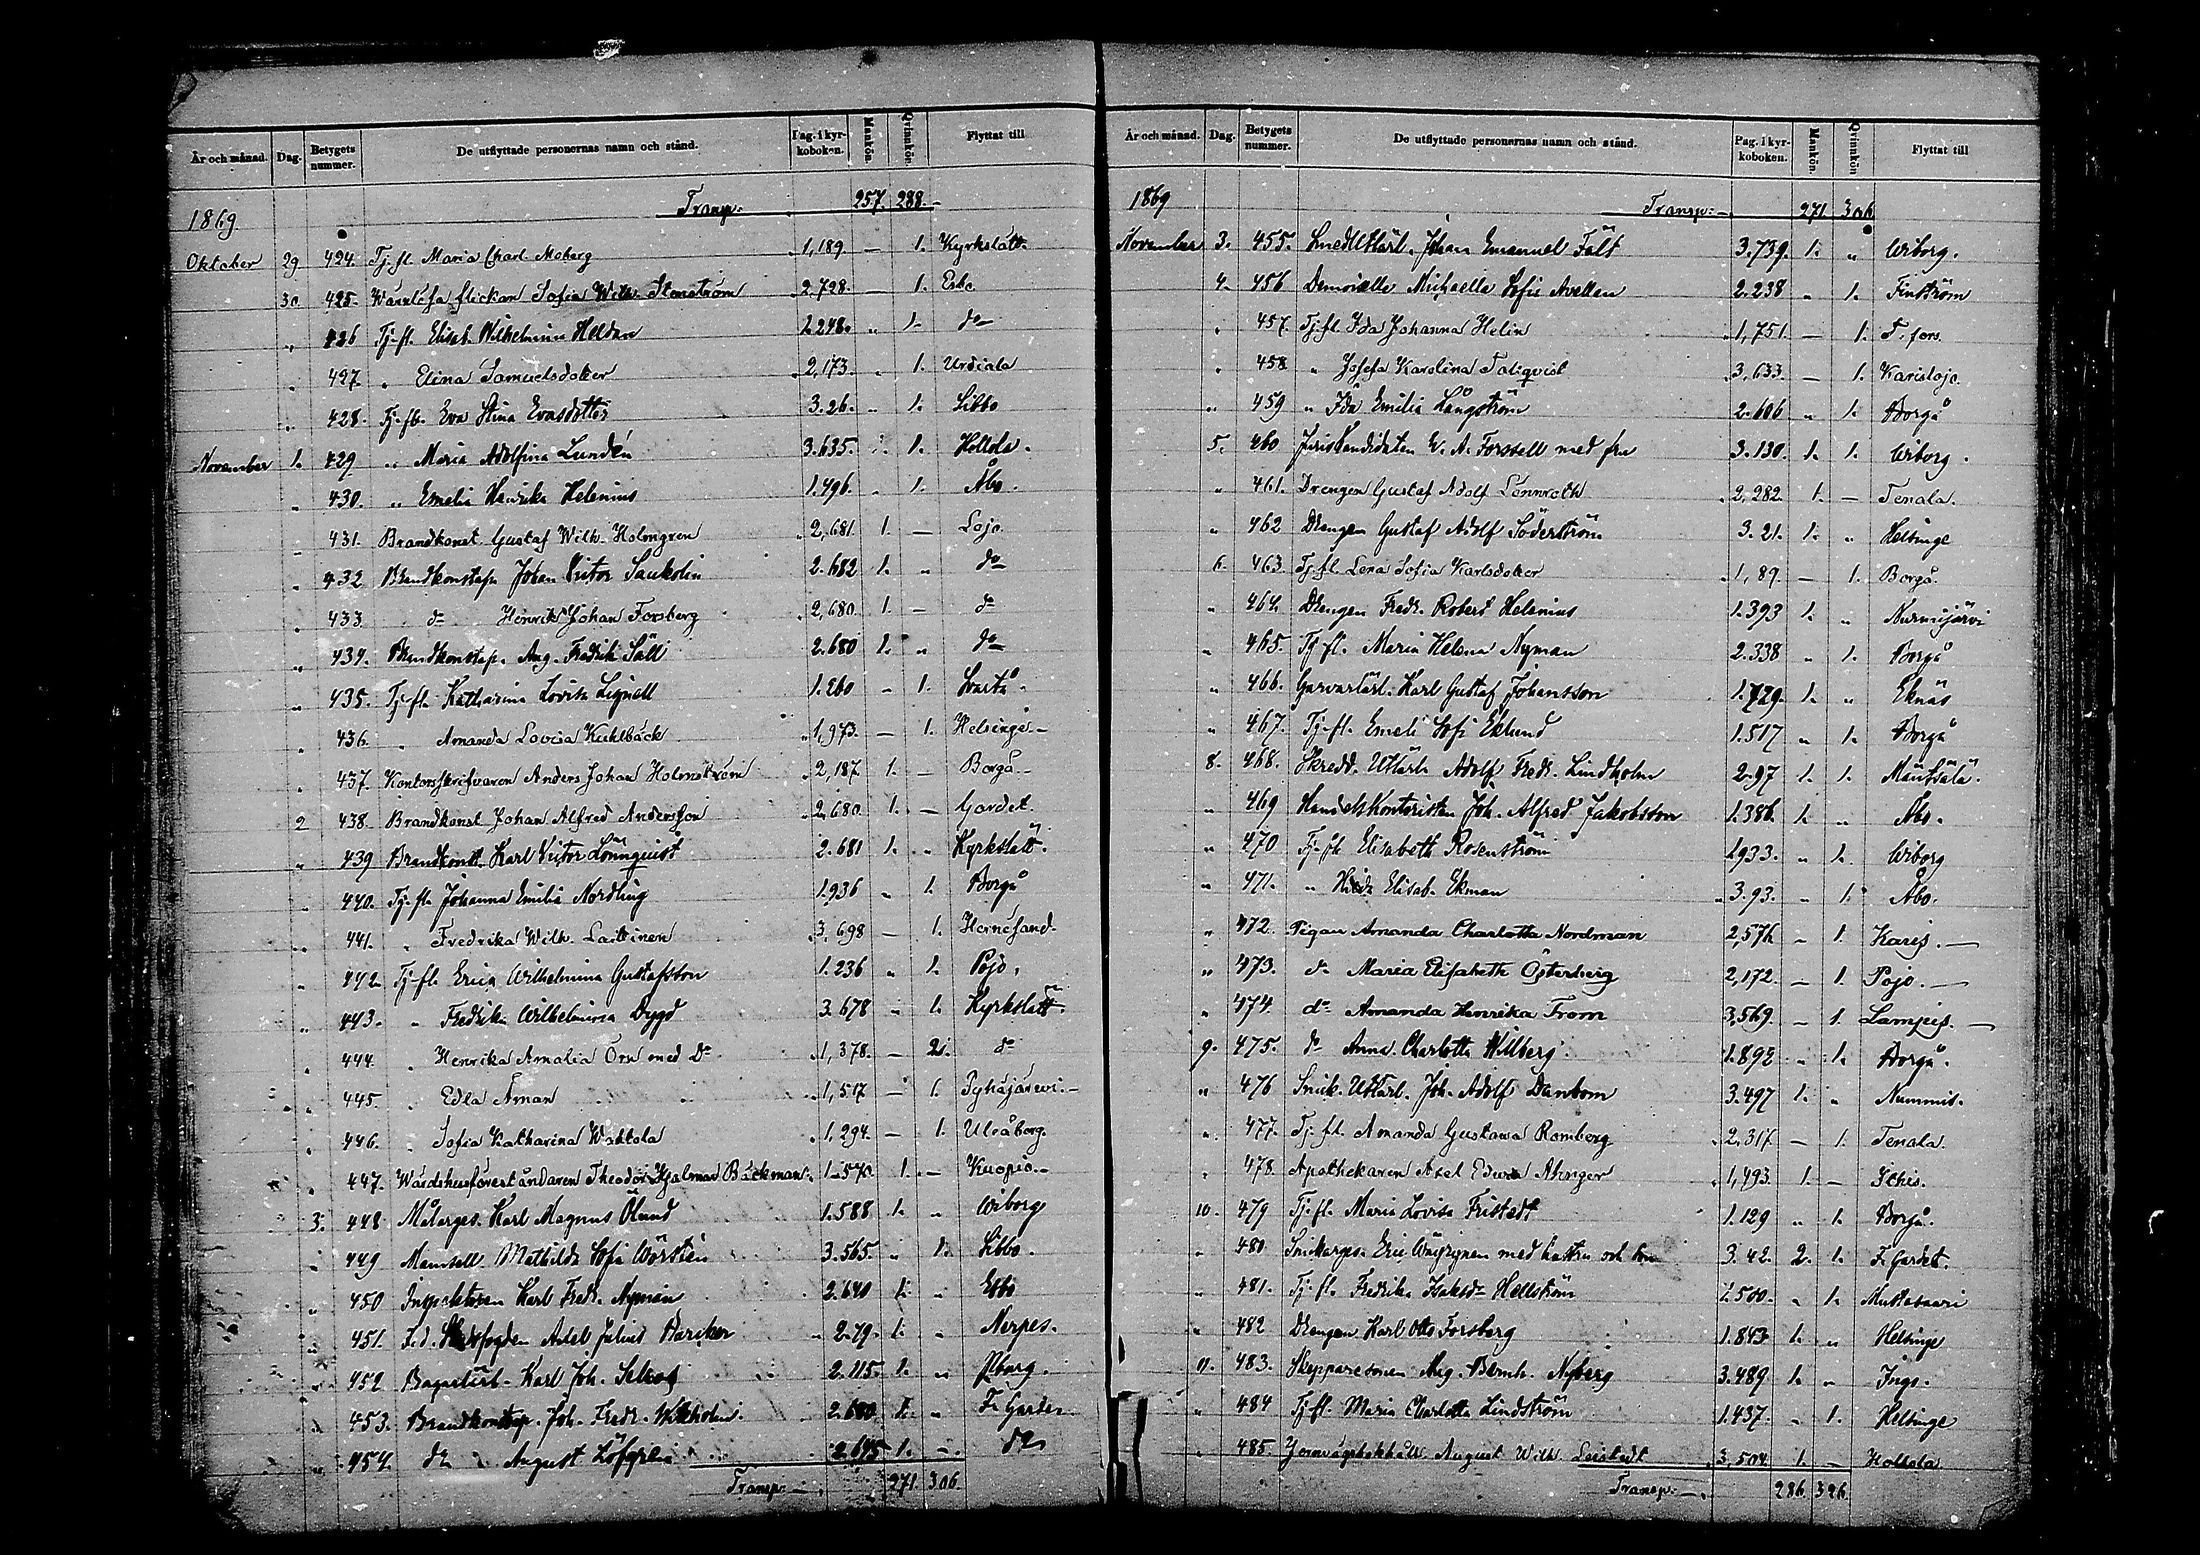 År och månad. Dag. Betygets nummer. De utflyttade personernas namn och stånd. Pag. i kyrkoboken. Mankön. Qvinnkön. Flyttat till
1869. Transp: 257. 288.
Oktober 29 424. Tj. fl. Maria Charl. Moberg 1,189. — 1. Kyrkslätt.
30 425. Wärnlösa flickan Sofia Wilh. Stenström 2,728. — 1. Esbo
" 426 Tj. fl. Elisab. Wilhelmina Helden 1.248. " 1. do
" 427. " Elina Samuelsdotter 2,173. " 1. Urdiala
" 428. Tj. fl. Eva Stina Evasdotter 3.26. " 1. Sibbo
November 1. 429 " Maria Adolfina Lundén 3.635. " 1. Hollola.
" 430. " Emelia Henrika Helenius 1.496. " 1. Åbo.
" 431. Brandkonst. Gustaf Wilh. Holmgren 2,681. 1. — Lojo.
" 432 Brandkonstap. Johan Victor Saukolin 2.682 1. " do
" 433. do Henrik Johan Forsberg 2,680. 1. — do
" 434. Brandkonstap. Aug. Fredrik Säll 2.680 1. " do
" 435. Tj. fl. Katharina Lovisa Lignell 1.260 " 1. Svartå.
" 436. " Amanda Lovisa Kuhlbäck 1,973. — 1. Helsinge.
" 437. Kontorsskrifvaren Anders Johan Holmström 2,187. 1. — Borgå.
2 438. Brandkonst. Johan Alfred Andersson 2,680. 1. — Gardet.
" 439 Brandkonst. Karl Victor Lönnquist 2.681 1. " Kyrkslätt.
" 440. Tj. fl. Johanna Emilia Nordling 1.936 " 1. Borgå
" 441. " Fredrika Wilh. Laitinen 3,698 — 1. Hernösand.
" 442 Tj. fl. Erica Wilhelmina Gustafsson 1.236 " 1. Pojo.
" 443. " Fredrika Wilhelmina Dygd 3.678 " 1. Kyrkslätt.
" 444. " Henrika Amalia Örn med Dr 1,378. — 2. do
" 445. " Edla Åman 1,517 — 1. Pyhäjärwi.
" 446. " Sofia Katharina Wattola 1,294. — 1. Uleåborg.
" 447. Wärdshusföreståndaren Theodor Hjalmar Bäckman 1.570. 1. — Kuopio.
3. 448 Målarges. Karl Magnus Ölund 1.588 1. " Wiborg
" 449 Mamsell Mathilda Sofia Wörstén 3.565. " 1. Sibbo.
" 450 Inspektoren Karl Fredr. Nyman 2.640 1. " Esbo
" 451. Axel Julius Bariker 2.79. 1. " Nerpes.
" 452 Karl Joh. 2.115. 1. "
" 453. Brandkonstap. Joh. Fredr. Wikholm. 2.680 1. " F. Gardet
" 454. do August Löfgren 2.645 1. — do
Transp: 271. 306.
År och månad. Dag. Betygets nummer. De utflyttade personernas namn och stånd. Pag. i kyrkoboken. Mankön. Qvinnkön Flyttat till
1869 Transp: 271. 306
November 3. 455. Smedslärl. Johan Emanuel Fält 3.739. 1. " Wiborg.
4. 456 Demoiselle Michaella Sofie Avellan 2.238 " 1. Finström
" 457. Tj. fl. Ida Johanna Helin 1,751. — 1. T. fors.
" 458 " Josefa Karolina Talqvist 3,633. — 1. Karislojo.
" 459 " Ida Emilia Långström 2.606 " 1. Borgå
5. 460 Juriskandidaten W. A. Forssell med fru 3.130. 1. 1. Wiborg.
" 461. Drengen Gustaf Adolf Lönnroth 2,282. 1. — Tenala.
" 462 Drengen Gustaf Adolf Söderström 3.21. 1. " Helsinge
6. 463. Tj. fl. Lena Sofia Karlsdotter 1,89. — 1. Borgå.
" 464. Drengen Fredr. Robert Helenius 1.393 1. " Nurmijärvi
" 465. Tj. fl. Maria Helena Nyman 2.338 " 1. Borgå
" 466. Garvarlärl. Karl Gustaf Johansson 1.729. 1. " Eknäs
" 467. Tj. fl. Emeli Sofi Eklund 1.517 " 1. Borgå
8. 468. Skredd. Utlärl. Adolf Fredr. Lindholm 2.97 1. 1. Mäntsälä.
" 469 Handelskontoristen Joh. Alfred Jakobsson 1.386. 1. " Åbo.
" 470 Tj. fl. Elisabeth Rosenström 1.933. " 1. Wiborg
" 471. " Hilda Elisab. Ekman 3.93. " 1. Åbo.
" 472. Pigan Amanda Charlotta Nordman 2,576 — 1. Karis.
" 473. do Maria Elisabeth Österberg 2,172. — 1. Pojo.
" 474 do Amanda Henrika From 3,569. — 1. Lampis.
9. 475. do Anna Charlotta Willberg 1.892 " 1. Borgå.
" 476 Snick. Utlärl. Joh. Adolf Danbom 3.497 1. " Nummis.
" 477. Tj. fl. Amanda Gustawa Romberg 2,317. — 1. Tenala.
" 478. Apothekaren Axel Edvard 1,493. 1. —
10. 479 Tj. fl. Maria Lovisa Fristedt 1.129 " 1. Borgå.
" 480 Snickarges. Eric med hustru och son 3.42. 2. 1. F. Gardet.
" 481. Tj. fl. Fredrika Isaksdr Hellström 1.500. " 1. Mustasaari
" 482 Drengen Karl Otto Forsberg 1.843 1. " Helsinge
11. 483. Skepparesonen Aug. Bernh. Nyberg 3.489 1. " Ingo.
" 484 Tj. fl. Maria Charlotta Lindström 1.437. " 1. Helsinge
" 485. August Wilh. Leistedt 3,504. 1. — Hollola.
Transp: 286. 326.